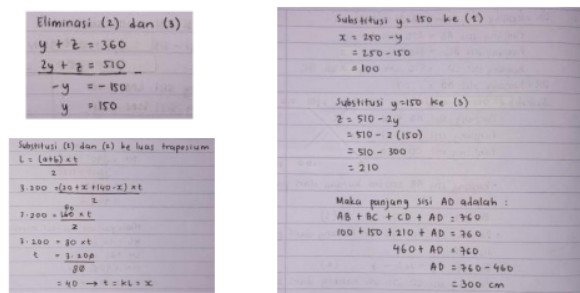 Eliminasi (2) dan (3)
y + z = 360
2y + z = 510 -
-y = -150
y = 150
Substitusi (1) dan (2) ke luas trapesium
L = (a+b) × t
2
3.200 = (20 + x + 140 - x) × t
2
3.200 = 160 × t
80
2
3.200 = 80 × t
t = 3.200
80
= 40 → t = KL = x
Substitusi y = 150 ke (1)
x = 250 - y
= 250 - 150
= 100
Substitusi y = 150 ke (3)
z = 510 - 2y
= 510 - 2 (150)
= 510 - 300
= 210
Maka panjang sisi AD adalah :
AB + BC + CD + AD = 760
100 + 150 + 210 + AD = 760
460 + AD = 760
AD = 760 - 460
= 300 cm